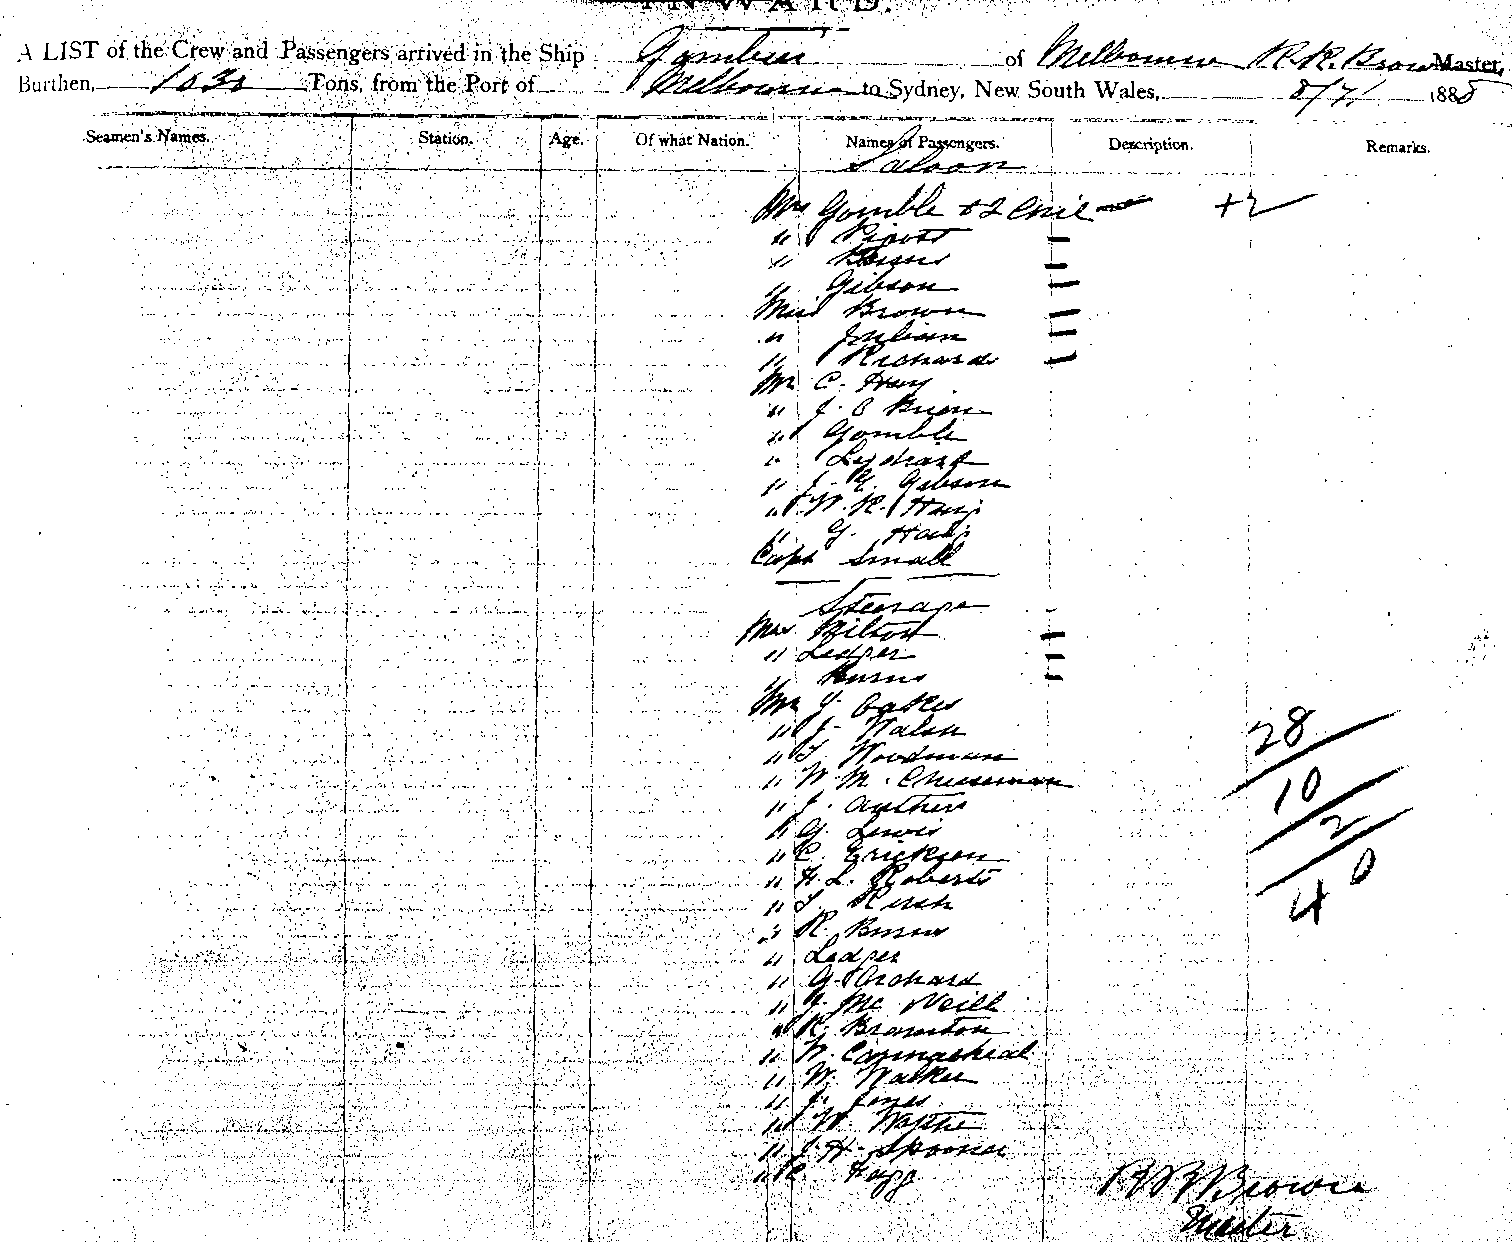 INWARD.
A LIST of the Crew and Passengers arrived in the Ship Gambier of Melbourne R. R. Brown Master,
Burthen, Tons, from the Port of Melbourne to Sydney, New South Wales, 8/7/ 1888
Seamen's Names. Station. Age. Of what Nation. Names of Passengers. Description. Remarks.
Saloon
Mrs Gomble + 2 Chil +2
" Pigott
" Burns
" Gibson
Miss Brown
" Julian
" Richards
Mr C. Hay
" J. O Brien
" Gomble
" Lydiard
" J. E. Gibson
" W. R. Haig
" G. Haig
Capt Small
Steerage
Mrs Bilton
" Ledger
" Burns
Mr J. Oakes
" J. Walsh
" T. Woodman
" W. M. Cheeseman
" J. Authers
" G. Lewis
" C. Erickson
" H. L. Roberts
" T. Kirsh
" R. Burns
" Ledger
" G. Orchard
" J. Mc Neill
" R. Bramston
" W. Carmichael
" W. Walker
" J. Jones
" W.
" J. H. Spooner
" R. Fagg
28
10
2
0
4
R R Brown
Master